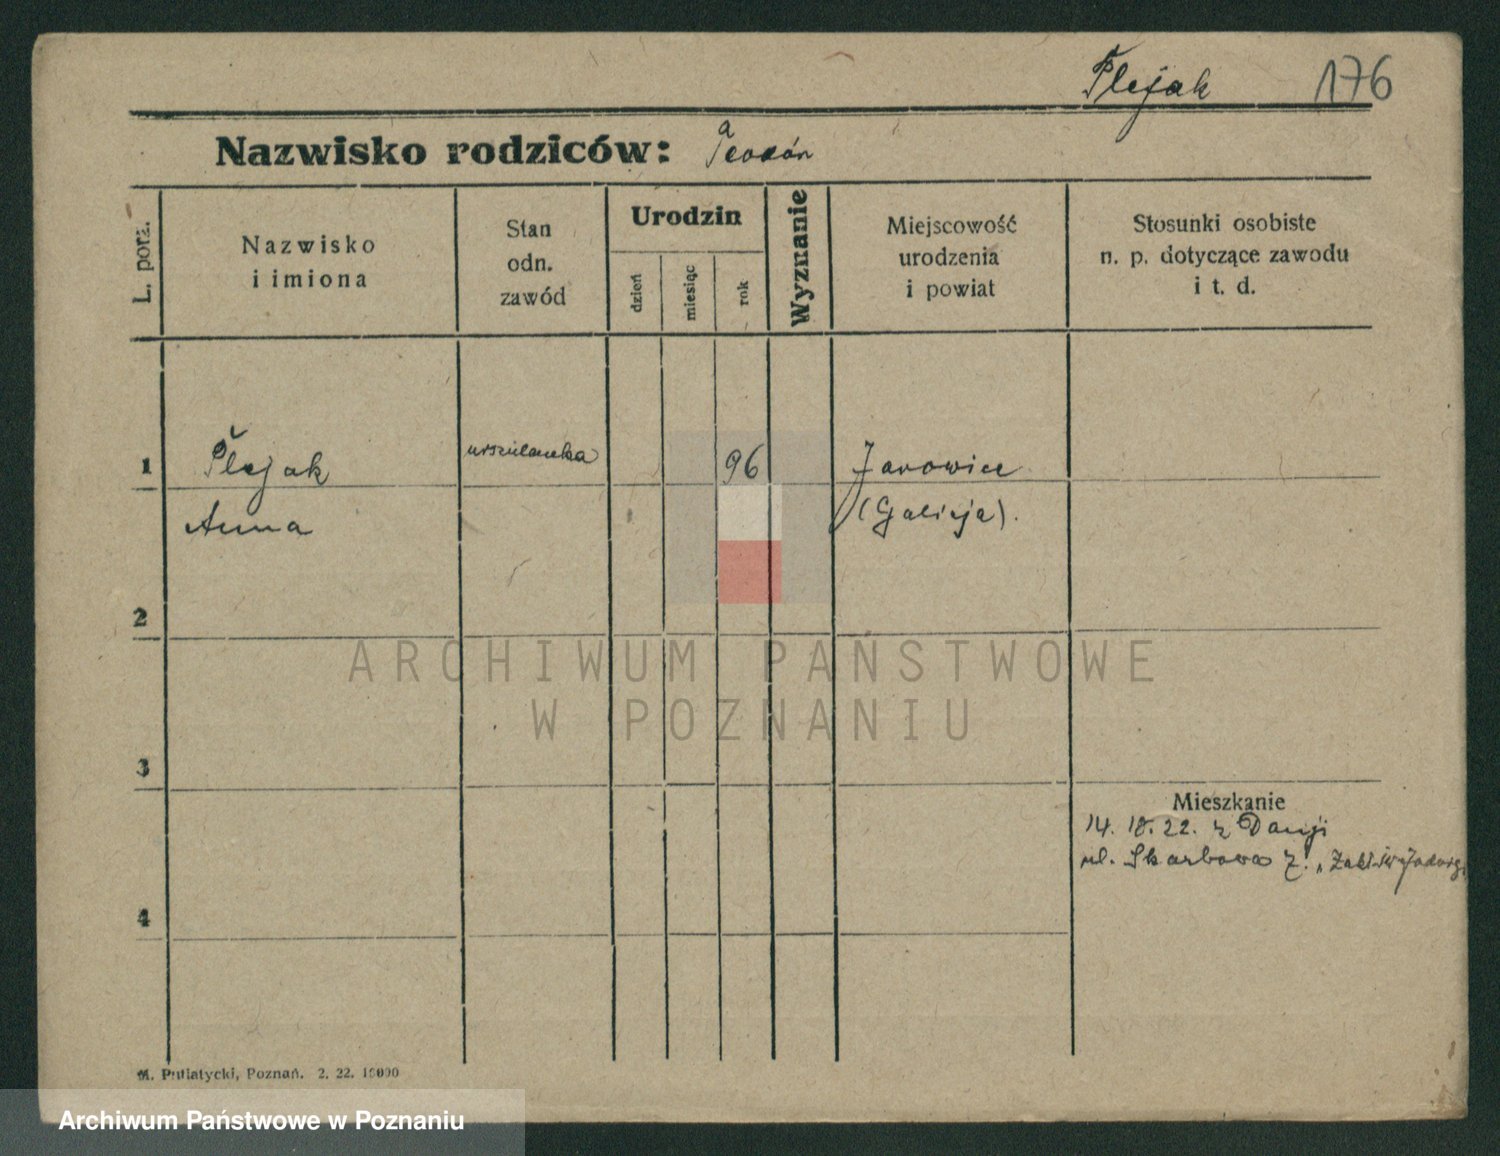 Plejak 176
Nazwisko rodziców: Teodór
L. porz.
Nazwisko
i imiona
Stan
odn.
zawód
Urodzin
dzień
miesiąc
rok
Wyznanie
Miejscowość
urodzenia
i powiat
Stosunki osobiste
n. p. dotyczące zawodu
i t. d.
1 Plejak urszulanka 96 Jarowice
Anna (Galicja).
2
ARCHIWUM PAŃSTWOWE
W POZNANIU
3
Mieszkanie
14. 10. 22. z Danji
ul. Skarbowa
4
M. Putiatycki, Poznań. 2. 22. 10000
Archiwum Państwowe w Poznaniu